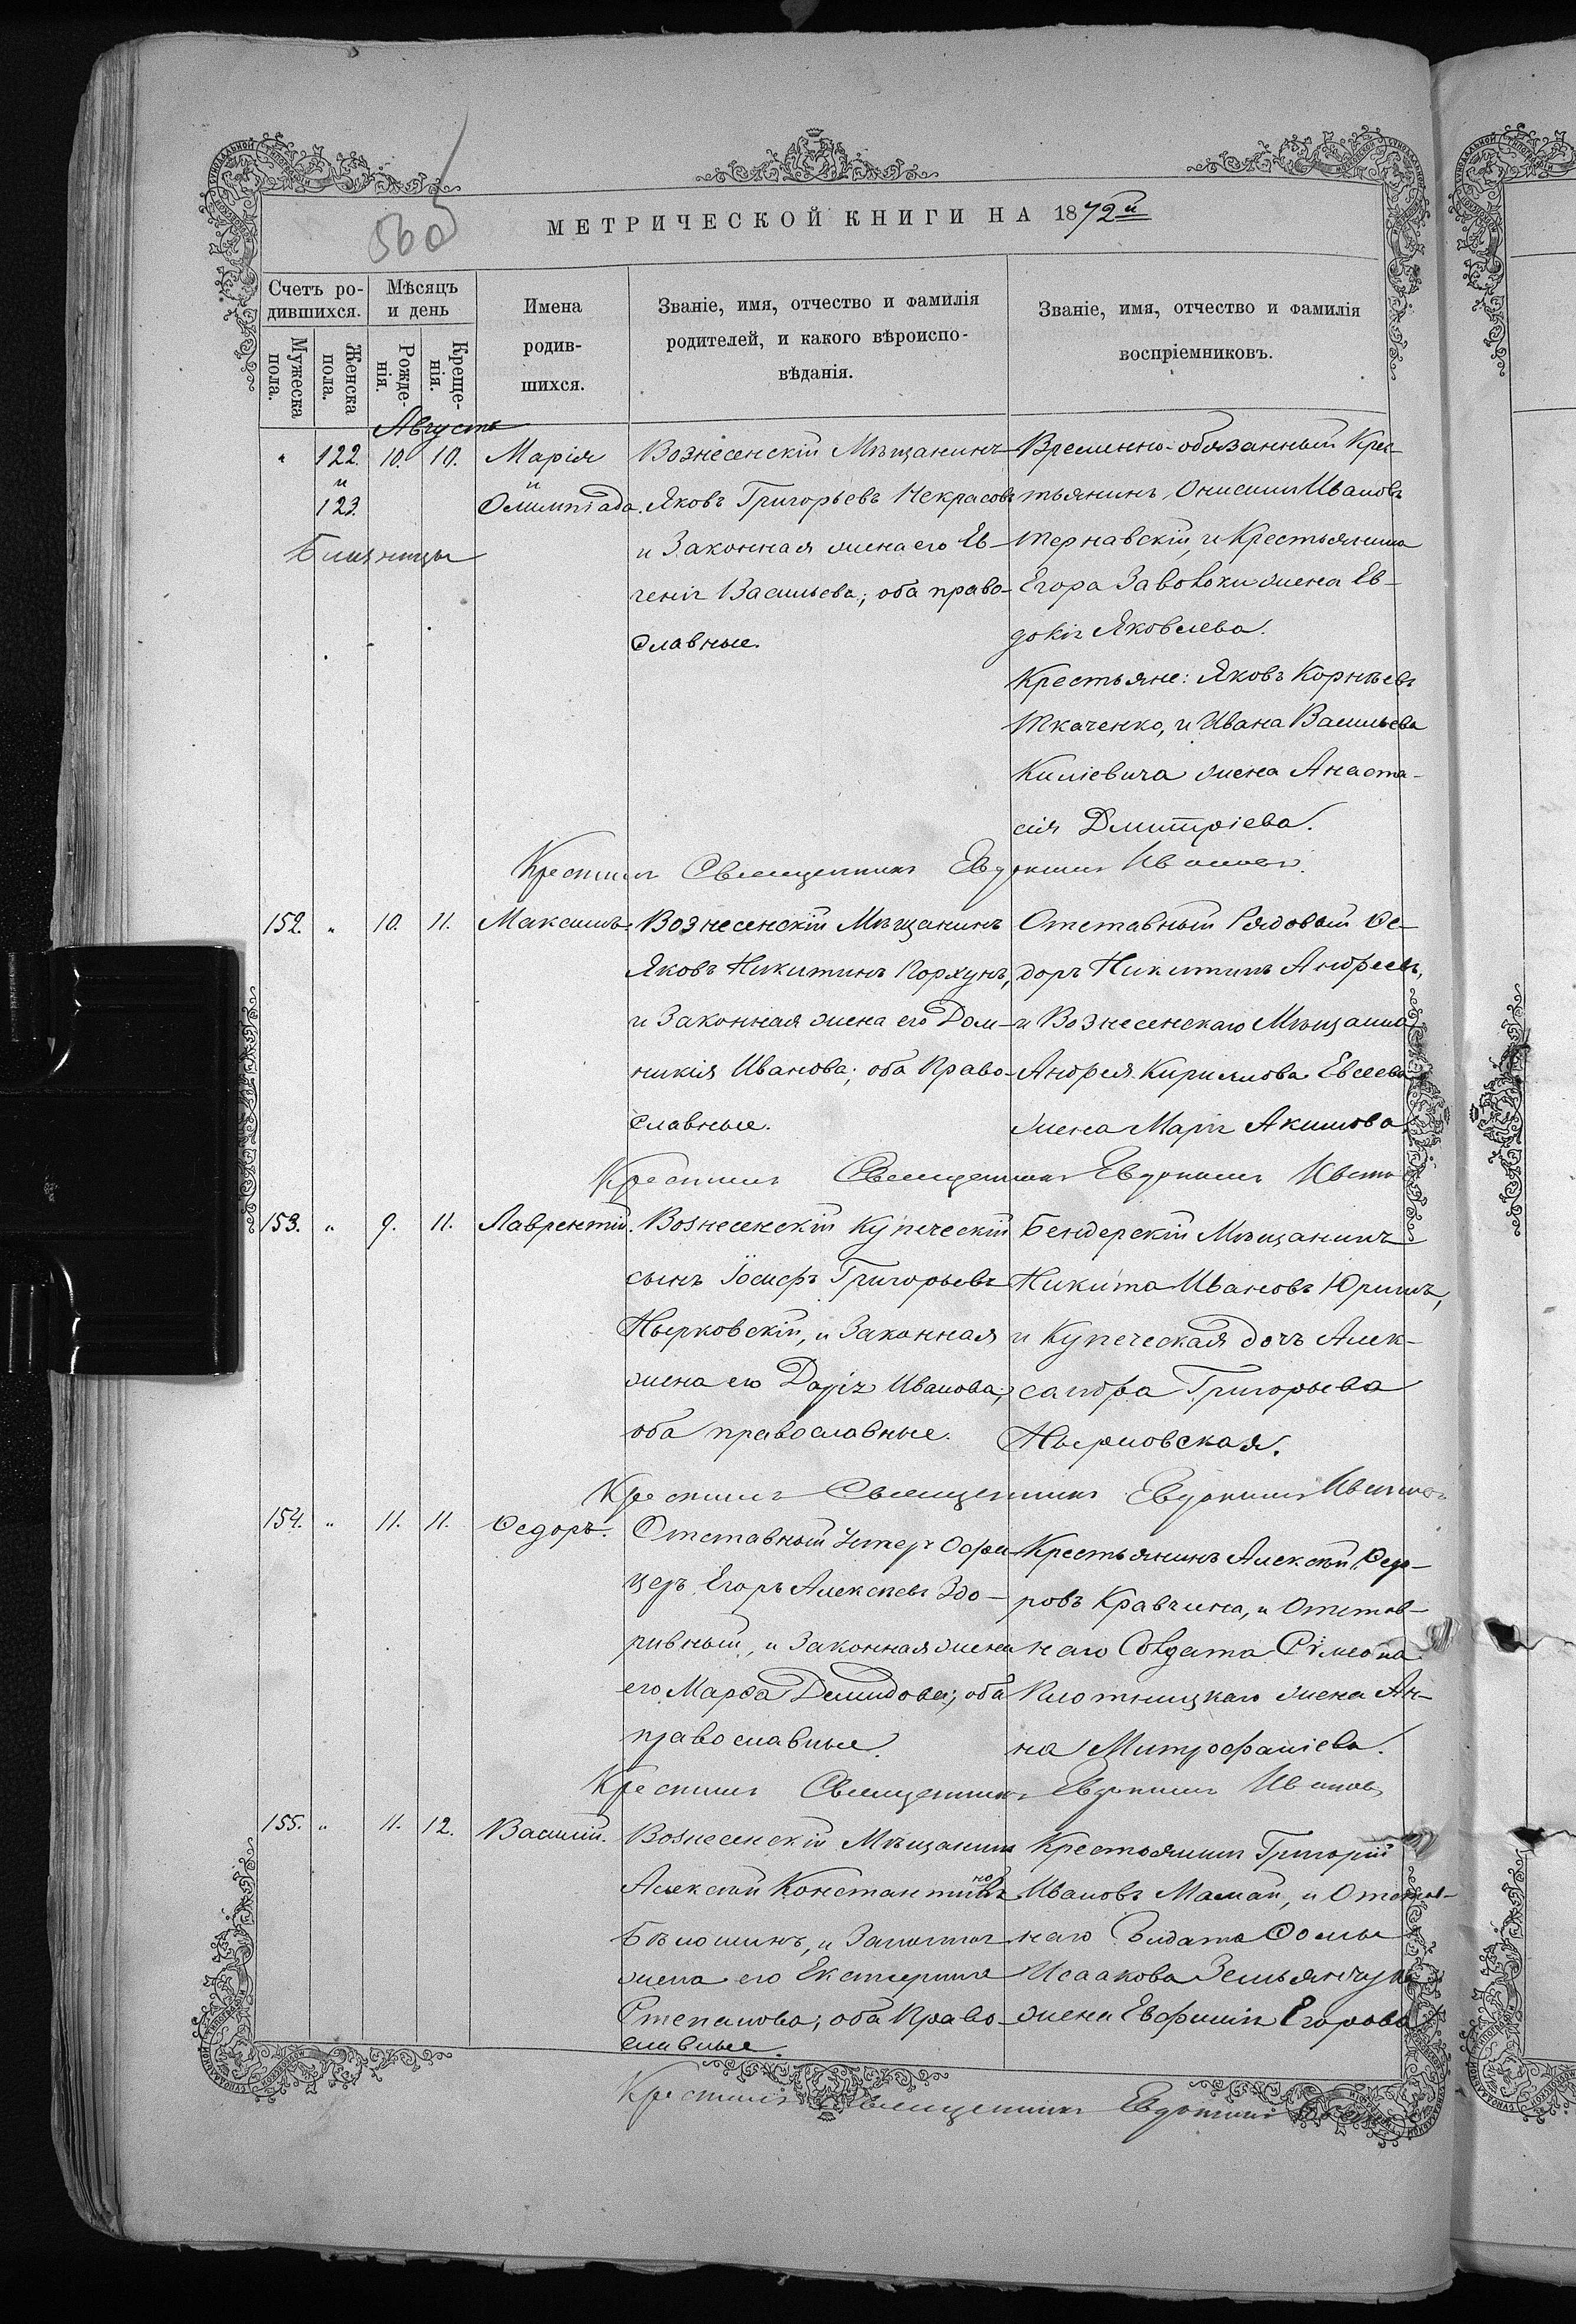 560
МЕТРИЧЕСКОЙ КНИГИ НА 1872й
Счетъ родившихся.
Мужеска пола.
Женска пола.
Мѣсяцъ и день
Рожденія.
Крещенія.
Имена родившихся.
Званіе, имя, отчество и фамилія
родителей, и какого вѣроисповѣданія.
Званіе, имя, отчество и фамилія
воспріемниковъ.
Августъ
" 122. 10. 10. Марія
и и
123. Олимпіада.
Близницы
Вознесенскій Мѣщанинъ
Яковъ Григорьевъ Некрасовъ
и Законная жена его Ев-
генія Васильева; оба право-
славные.
Временно-обязанный Крес-
тьянинъ, Онисимъ Ивановъ
Тернавскій, и Крестьянина
Егора Заволоки жена Ев-
докія Яковлева.
Крестьяне: Яковъ Корнѣевъ
Ткаченко, и Ивана Васильева
Килиевича жена Анаста-
сія Дмитріева.
Крестилъ Священникъ Евдокимъ Ивановъ.
152. " 10. 11. Максимъ.
Вознесенскій Мѣщанинъ
Яковъ Никитинъ Корхунъ,
и Законная жена его Дом-
никія Иванова; оба Право-
славные.
Отставный Рядовый Ѳе-
доръ Никитинъ Андреевъ,
и Вознесенскаго Мѣщанина
Андрея Кирилова Евсеева
жена Марія Акимова
Крестилъ Священникъ Евдокимъ
153. " 9. 11. Лаврентій.
Вознесенскій Купеческій
сынъ Іосифъ Григорьевъ
и Законная
жена его Дарія Иванова;
оба православные.
Бендерскій Мѣщанинъ
Никита Ивановъ Юринъ,
и Купеческая дочь Алек-
сандра Григорьева
Крестилъ Священникъ Евдокимъ Ивановъ
154. " 11. 11. Ѳедоръ.
Отставный Унтеръ Офи-
церъ Егоръ Алексѣевъ Здо-
ривный, и Законная жена
его Марѳа Демидова; оба
православные.
Крестьянинъ Алексѣй Ѳедо-
ровъ Кравчина, и Отстав-
наго Солдата Сѵмеона
Плотницкаго жена Ан-
на Митрофаніева.
Крестилъ Священникъ Евдокимъ Ивановъ
155. " 11. 12. Василій.
Вознесенскій Мѣщанинъ
Алексѣй Константиновъ
Бѣлошинъ, и Законная
жена его Екатерина
Степанова; оба Право-
славные.
Крестьянинъ Григорій
Ивановъ Мамай, и Отстав-
наго Солдата Ѳомы
Исаакова Земьянчука
жена Евфимія Егорова
Крестилъ Священникъ Евдокимъ